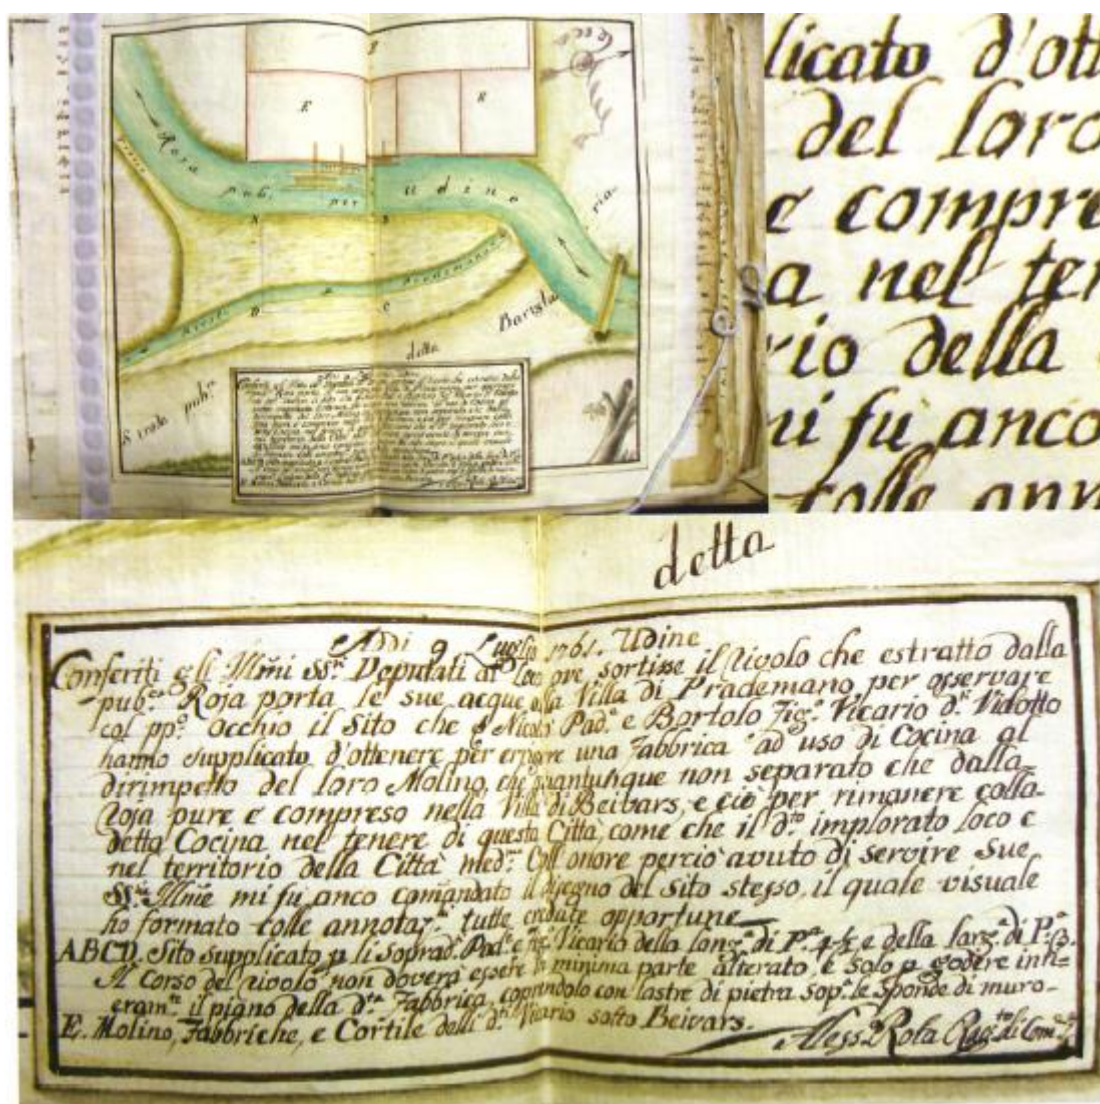 Roja pub.ª per Udine
E
E
D
C
Strada pub.ª
detta
Bariglaria
licato d'ott
del loro
e compre
a nel ter
rio della
mi fu anco
colle ann
detta
Addi 9 Luglio 1761. Udine
Conferiti gli Illmi SSri Deputati al Loco ove sortisse il rivolo che estratto dalla
pub.ca Roja porta le sue acque alla Villa di Prademano, per osservare
col pp.º occhio il Sito che Nicolò Pad.e e Bortolo Fig.º Vicario d.ti Vidotto
hanno supplicato d'ottenere per erigere una Fabbrica ad uso di Cocina al
dirimpetto del loro Molino, che quantunque non separato che dalla
Roja pure e compreso nella Villa di Beivars, e ciò per rimanere colla
detta Cocina nel tenere di questa Città, come che il d.to implorato loco e
nel territorio della Città med.ma Coll'onore perciò avuto di servire Sue
SS.rie Illme mi fu anco comandato il disegno del sito stesso, il quale visuale
ho formato colle annotaz.ni tutte credute opportune
ABCD. Sito supplicato p li soprad.ti Pad.e e fig.º Vicario della long.ª di P.ª 4½ e della larg.ª di P.ª 3.
Il corso del rivolo non doverà essere in minima parte alterato, e solo p godere inti-
eram.te il pigno della d.ta Fabbrica, coprendolo con lastre di pietra sop.ª le Sponde di muro
E. Molino, Fabbriche, e Cortile delli d.ti Vicario sotto Beivars.
Aless.º Rota